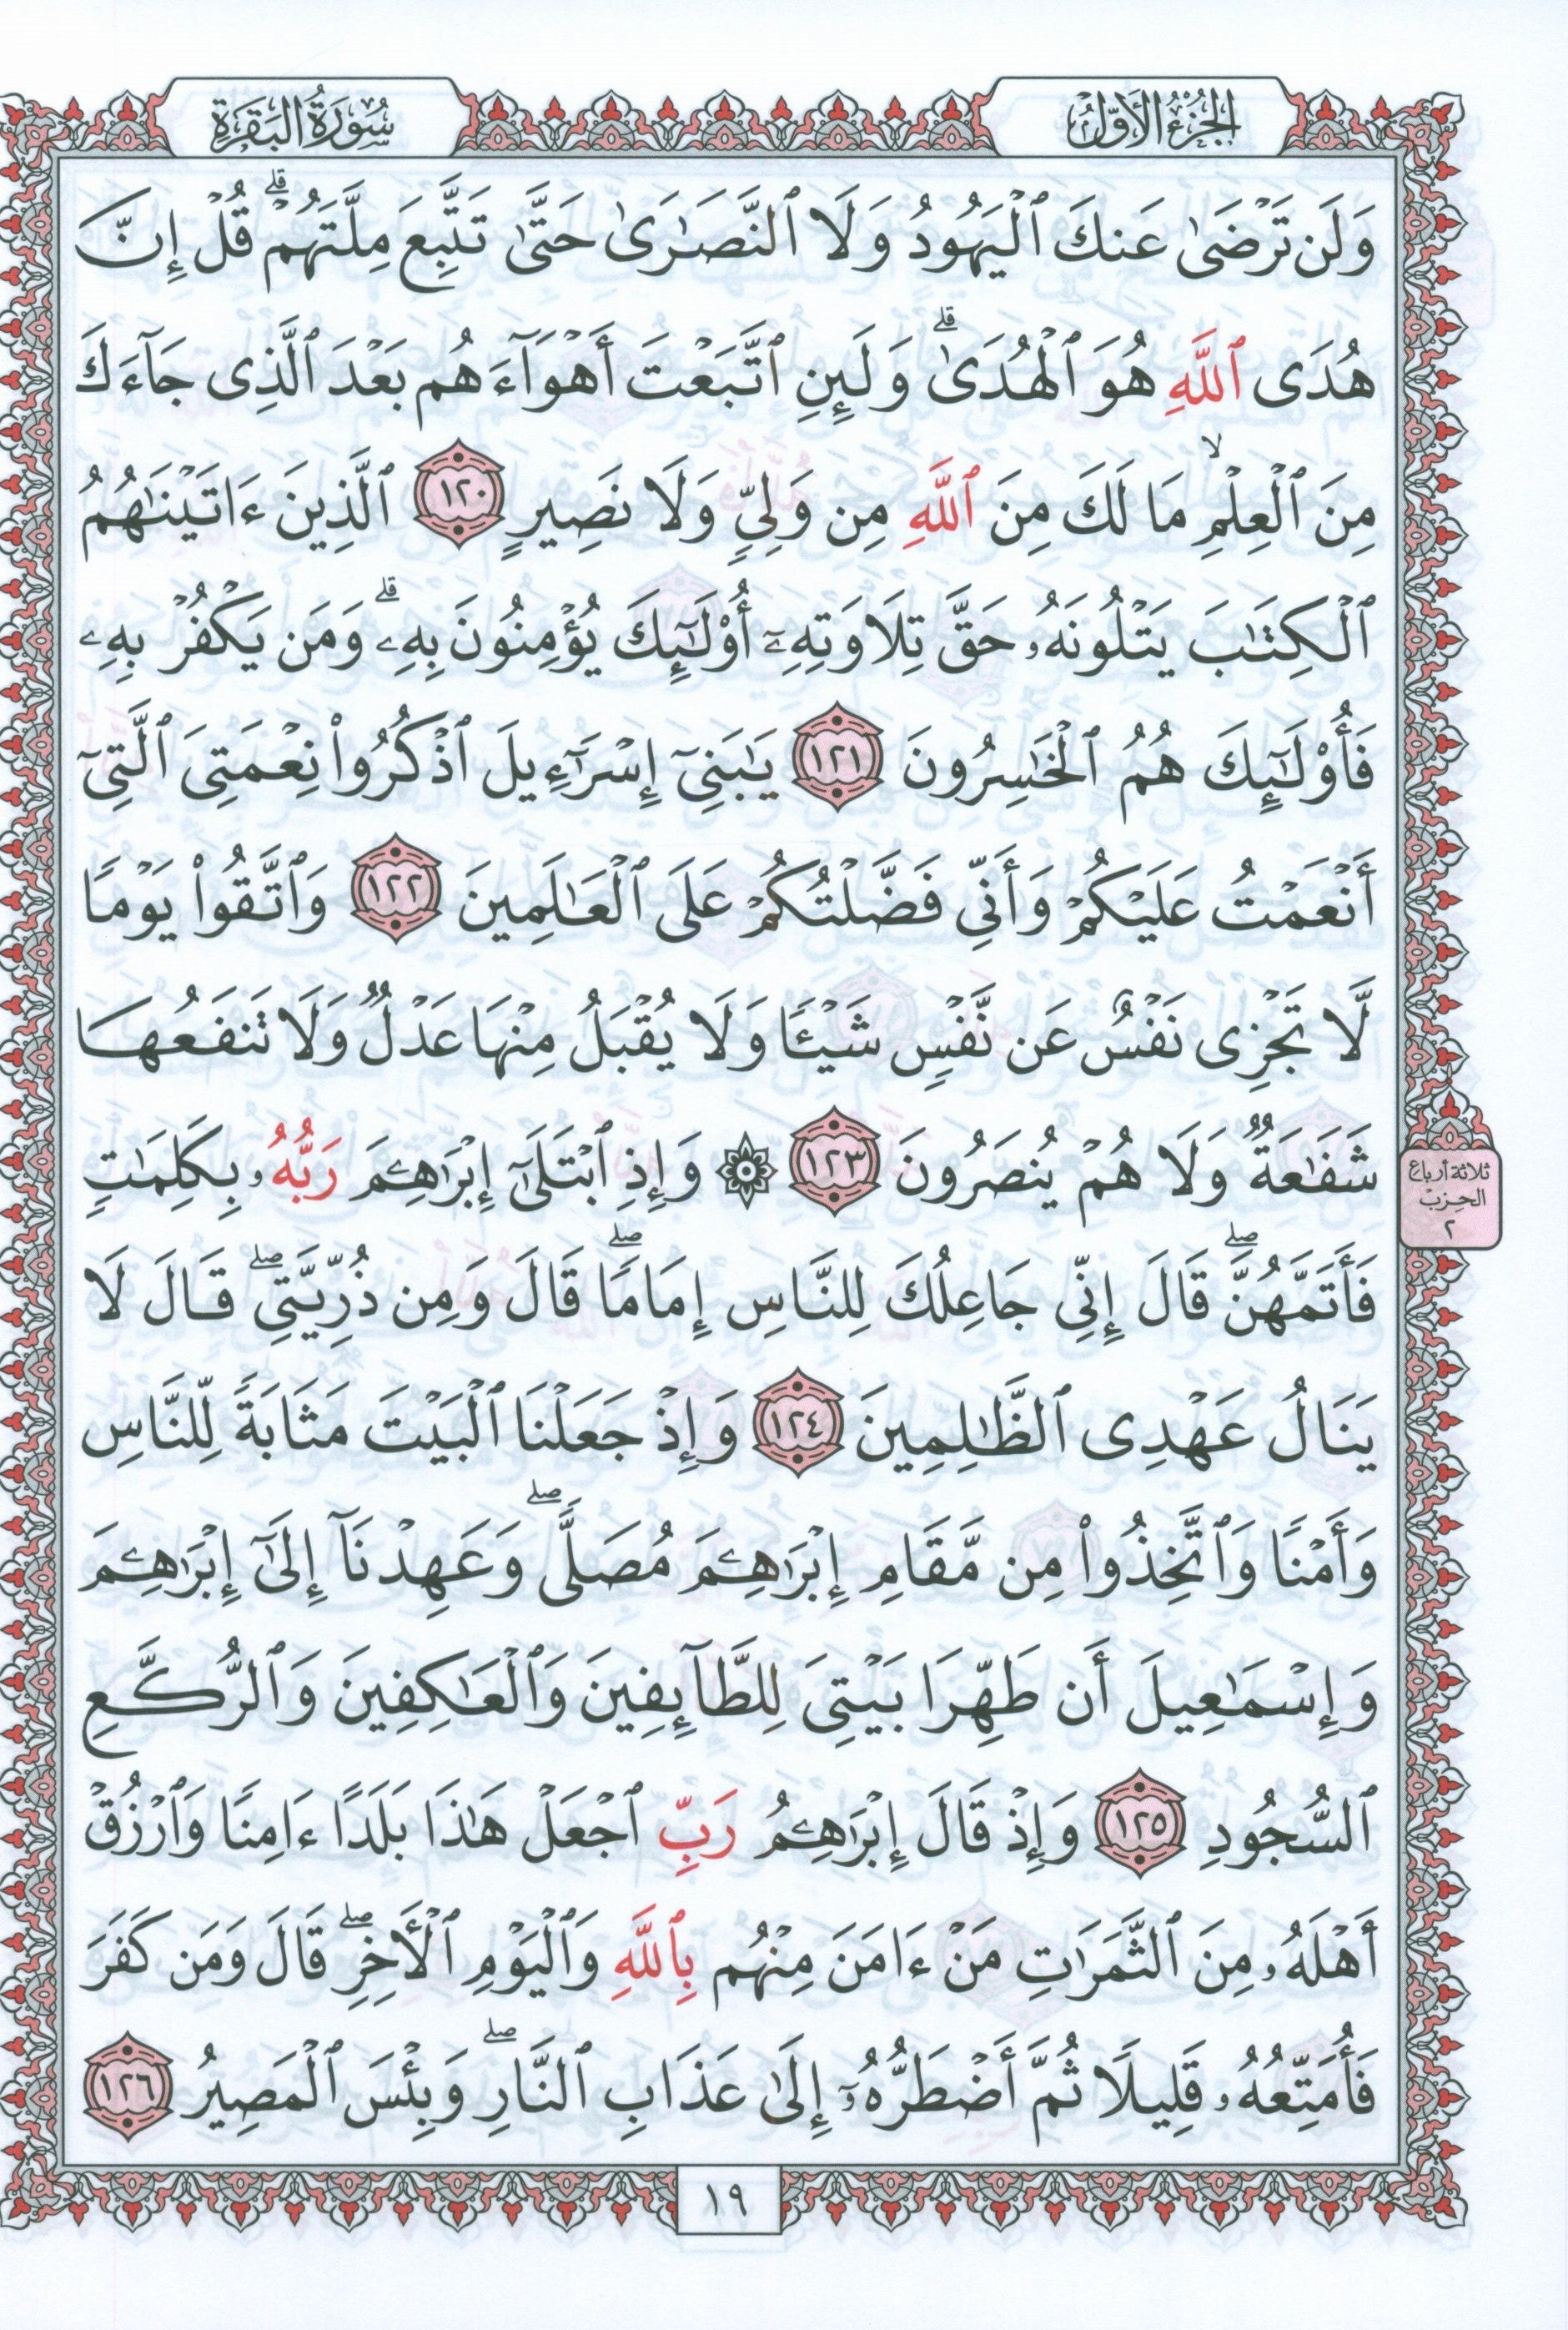 الجُزْءُ الأَوَّلُ
سُورَةُ البَقَرَةِ
وَلَن تَرْضَىٰ عَنكَ ٱلْيَهُودُ وَلَا ٱلنَّصَـٰرَىٰ حَتَّىٰ تَتَّبِعَ مِلَّتَهُمْ ۗ قُلْ إِنَّ
هُدَى ٱللَّهِ هُوَ ٱلْهُدَىٰ ۗ وَلَئِنِ ٱتَّبَعْتَ أَهْوَآءَهُم بَعْدَ ٱلَّذِى جَآءَكَ
مِنَ ٱلْعِلْمِ ۙ مَا لَكَ مِنَ ٱللَّهِ مِن وَلِىٍّ وَلَا نَصِيرٍ ١٢٠ ٱلَّذِينَ ءَاتَيْنَـٰهُمُ
ٱلْكِتَـٰبَ يَتْلُونَهُۥ حَقَّ تِلَاوَتِهِۦٓ أُو۟لَـٰٓئِكَ يُؤْمِنُونَ بِهِۦ ۗ وَمَن يَكْفُرْ بِهِۦ
فَأُو۟لَـٰٓئِكَ هُمُ ٱلْخَـٰسِرُونَ ١٢١ يَـٰبَنِىٓ إِسْرَٰٓءِيلَ ٱذْكُرُوا۟ نِعْمَتِىَ ٱلَّتِىٓ
أَنْعَمْتُ عَلَيْكُمْ وَأَنِّى فَضَّلْتُكُمْ عَلَى ٱلْعَـٰلَمِينَ ١٢٢ وَٱتَّقُوا۟ يَوْمًا
لَّا تَجْزِى نَفْسٌ عَن نَّفْسٍ شَيْـًٔا وَلَا يُقْبَلُ مِنْهَا عَدْلٌ وَلَا تَنفَعُهَا
شَفَـٰعَةٌ وَلَا هُمْ يُنصَرُونَ ١٢٣ ۞ وَإِذِ ٱبْتَلَىٰٓ إِبْرَٰهِـۧمَ رَبُّهُۥ بِكَلِمَـٰتٍ
فَأَتَمَّهُنَّ ۖ قَالَ إِنِّى جَاعِلُكَ لِلنَّاسِ إِمَامًا ۖ قَالَ وَمِن ذُرِّيَّتِى ۖ قَالَ لَا
يَنَالُ عَهْدِى ٱلظَّـٰلِمِينَ ١٢٤ وَإِذْ جَعَلْنَا ٱلْبَيْتَ مَثَابَةً لِّلنَّاسِ
وَأَمْنًا وَٱتَّخِذُوا۟ مِن مَّقَامِ إِبْرَٰهِـۧمَ مُصَلًّى ۖ وَعَهِدْنَآ إِلَىٰٓ إِبْرَٰهِـۧمَ
وَإِسْمَـٰعِيلَ أَن طَهِّرَا بَيْتِىَ لِلطَّآئِفِينَ وَٱلْعَـٰكِفِينَ وَٱلرُّكَّعِ
ٱلسُّجُودِ ١٢٥ وَإِذْ قَالَ إِبْرَٰهِـۧمُ رَبِّ ٱجْعَلْ هَـٰذَا بَلَدًا ءَامِنًا وَٱرْزُقْ
أَهْلَهُۥ مِنَ ٱلثَّمَرَٰتِ مَنْ ءَامَنَ مِنْهُم بِٱللَّهِ وَٱلْيَوْمِ ٱلْـَٔاخِرِ ۖ قَالَ وَمَن كَفَرَ
فَأُمَتِّعُهُۥ قَلِيلًا ثُمَّ أَضْطَرُّهُۥٓ إِلَىٰ عَذَابِ ٱلنَّارِ ۖ وَبِئْسَ ٱلْمَصِيرُ ١٢٦
ثلاثة أرباع
الحزب
٢
١٩